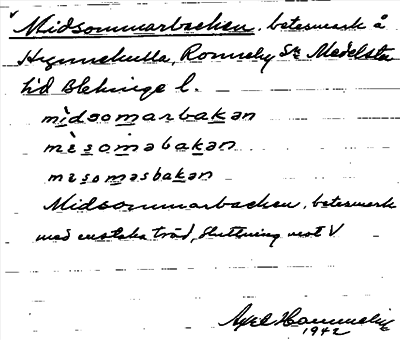 Midsommarbacken, betesmark å
Hynnekulla, Ronneby Sn Medelsta
hd Blekinge l.
mìdsomarbakan
mèsomabakan
mesomasbakan
Midsommarbacken, betesmark
med enstaka träd, sluttning mot V
Axel
1942